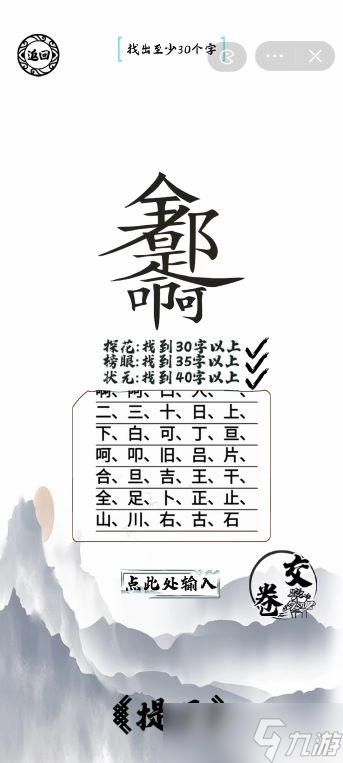 返回
找出至少30个字
全
都
是
啊
探花:找到30字以上
榜眼:找到35字以上
状元:找到40字以上
啊、阿、口、人、一、
二、三、十、日、上、
下、白、可、丁、亘、
呵、叩、旧、吕、片、
合、旦、吉、王、干、
全、足、卜、正、止、
山、川、右、古、石
点此处输入
交卷
《提
九游